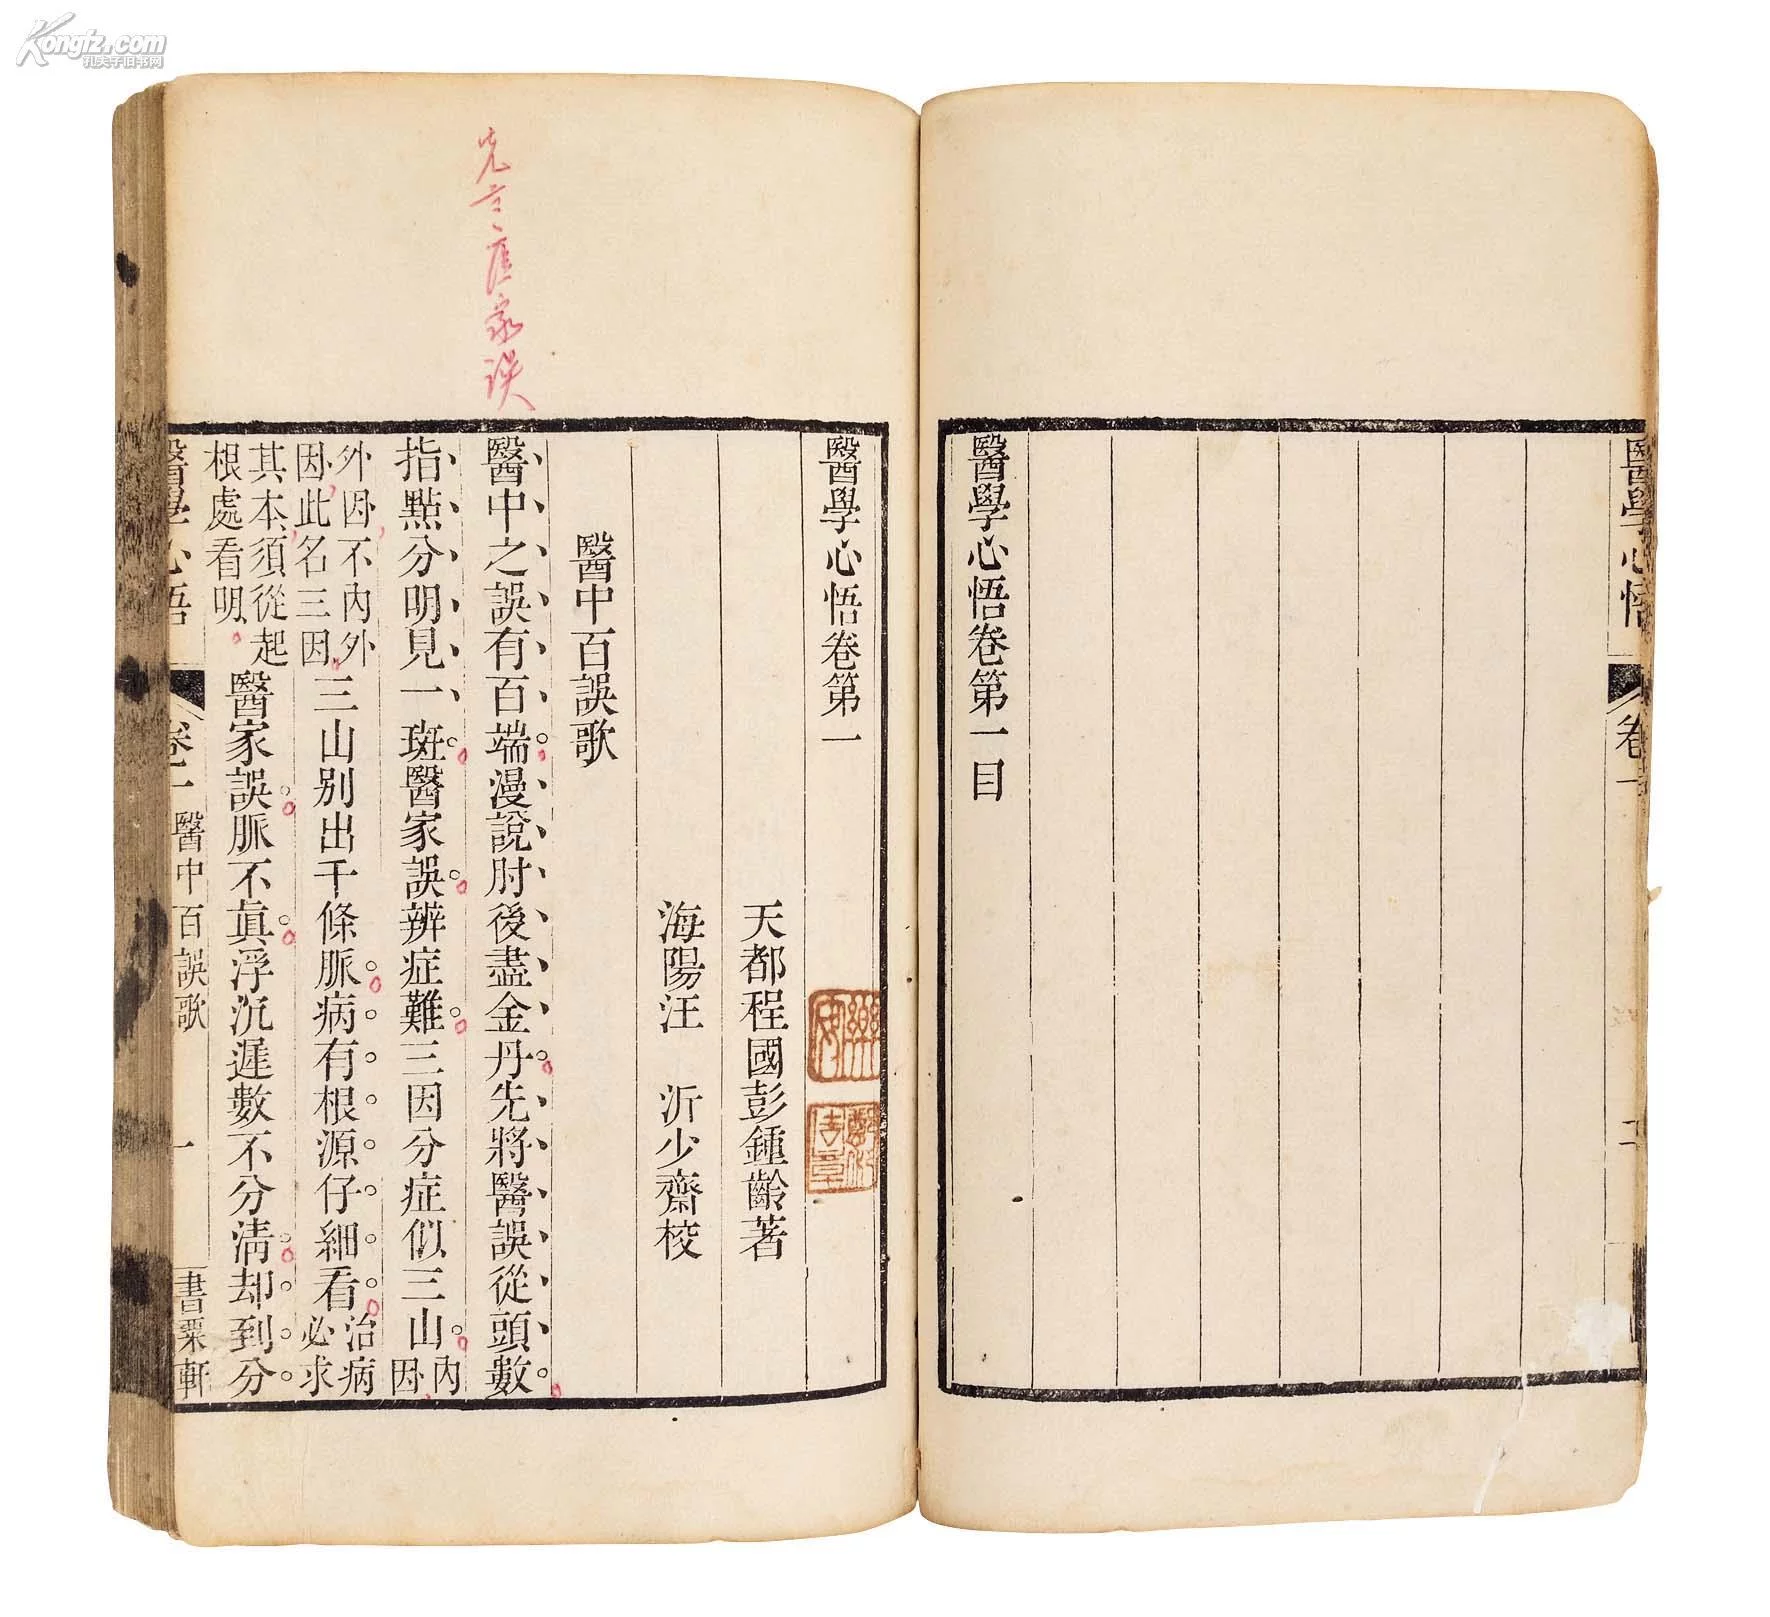 Kongfz.com
孔夫子旧书网
醫學心悟
卷一
二
醫學心悟卷第一目
醫學心悟卷第一
天都程國彭鍾齡著
海陽汪 沂少齋校
醫中百誤歌
先言醫家誤
醫中之誤有百端漫說肘後盡金丹先將醫誤從頭數
指點分明見一斑醫家誤辨症難三因分症似三山內因
外因不內外
因此名三因
三山別出千條脈病有根源仔細看治病必求
其本須從起
根處看明
醫家誤脈不眞浮沉遲數不分淸却到分
醫學心悟
卷一
醫中百誤歌
一
書業軒